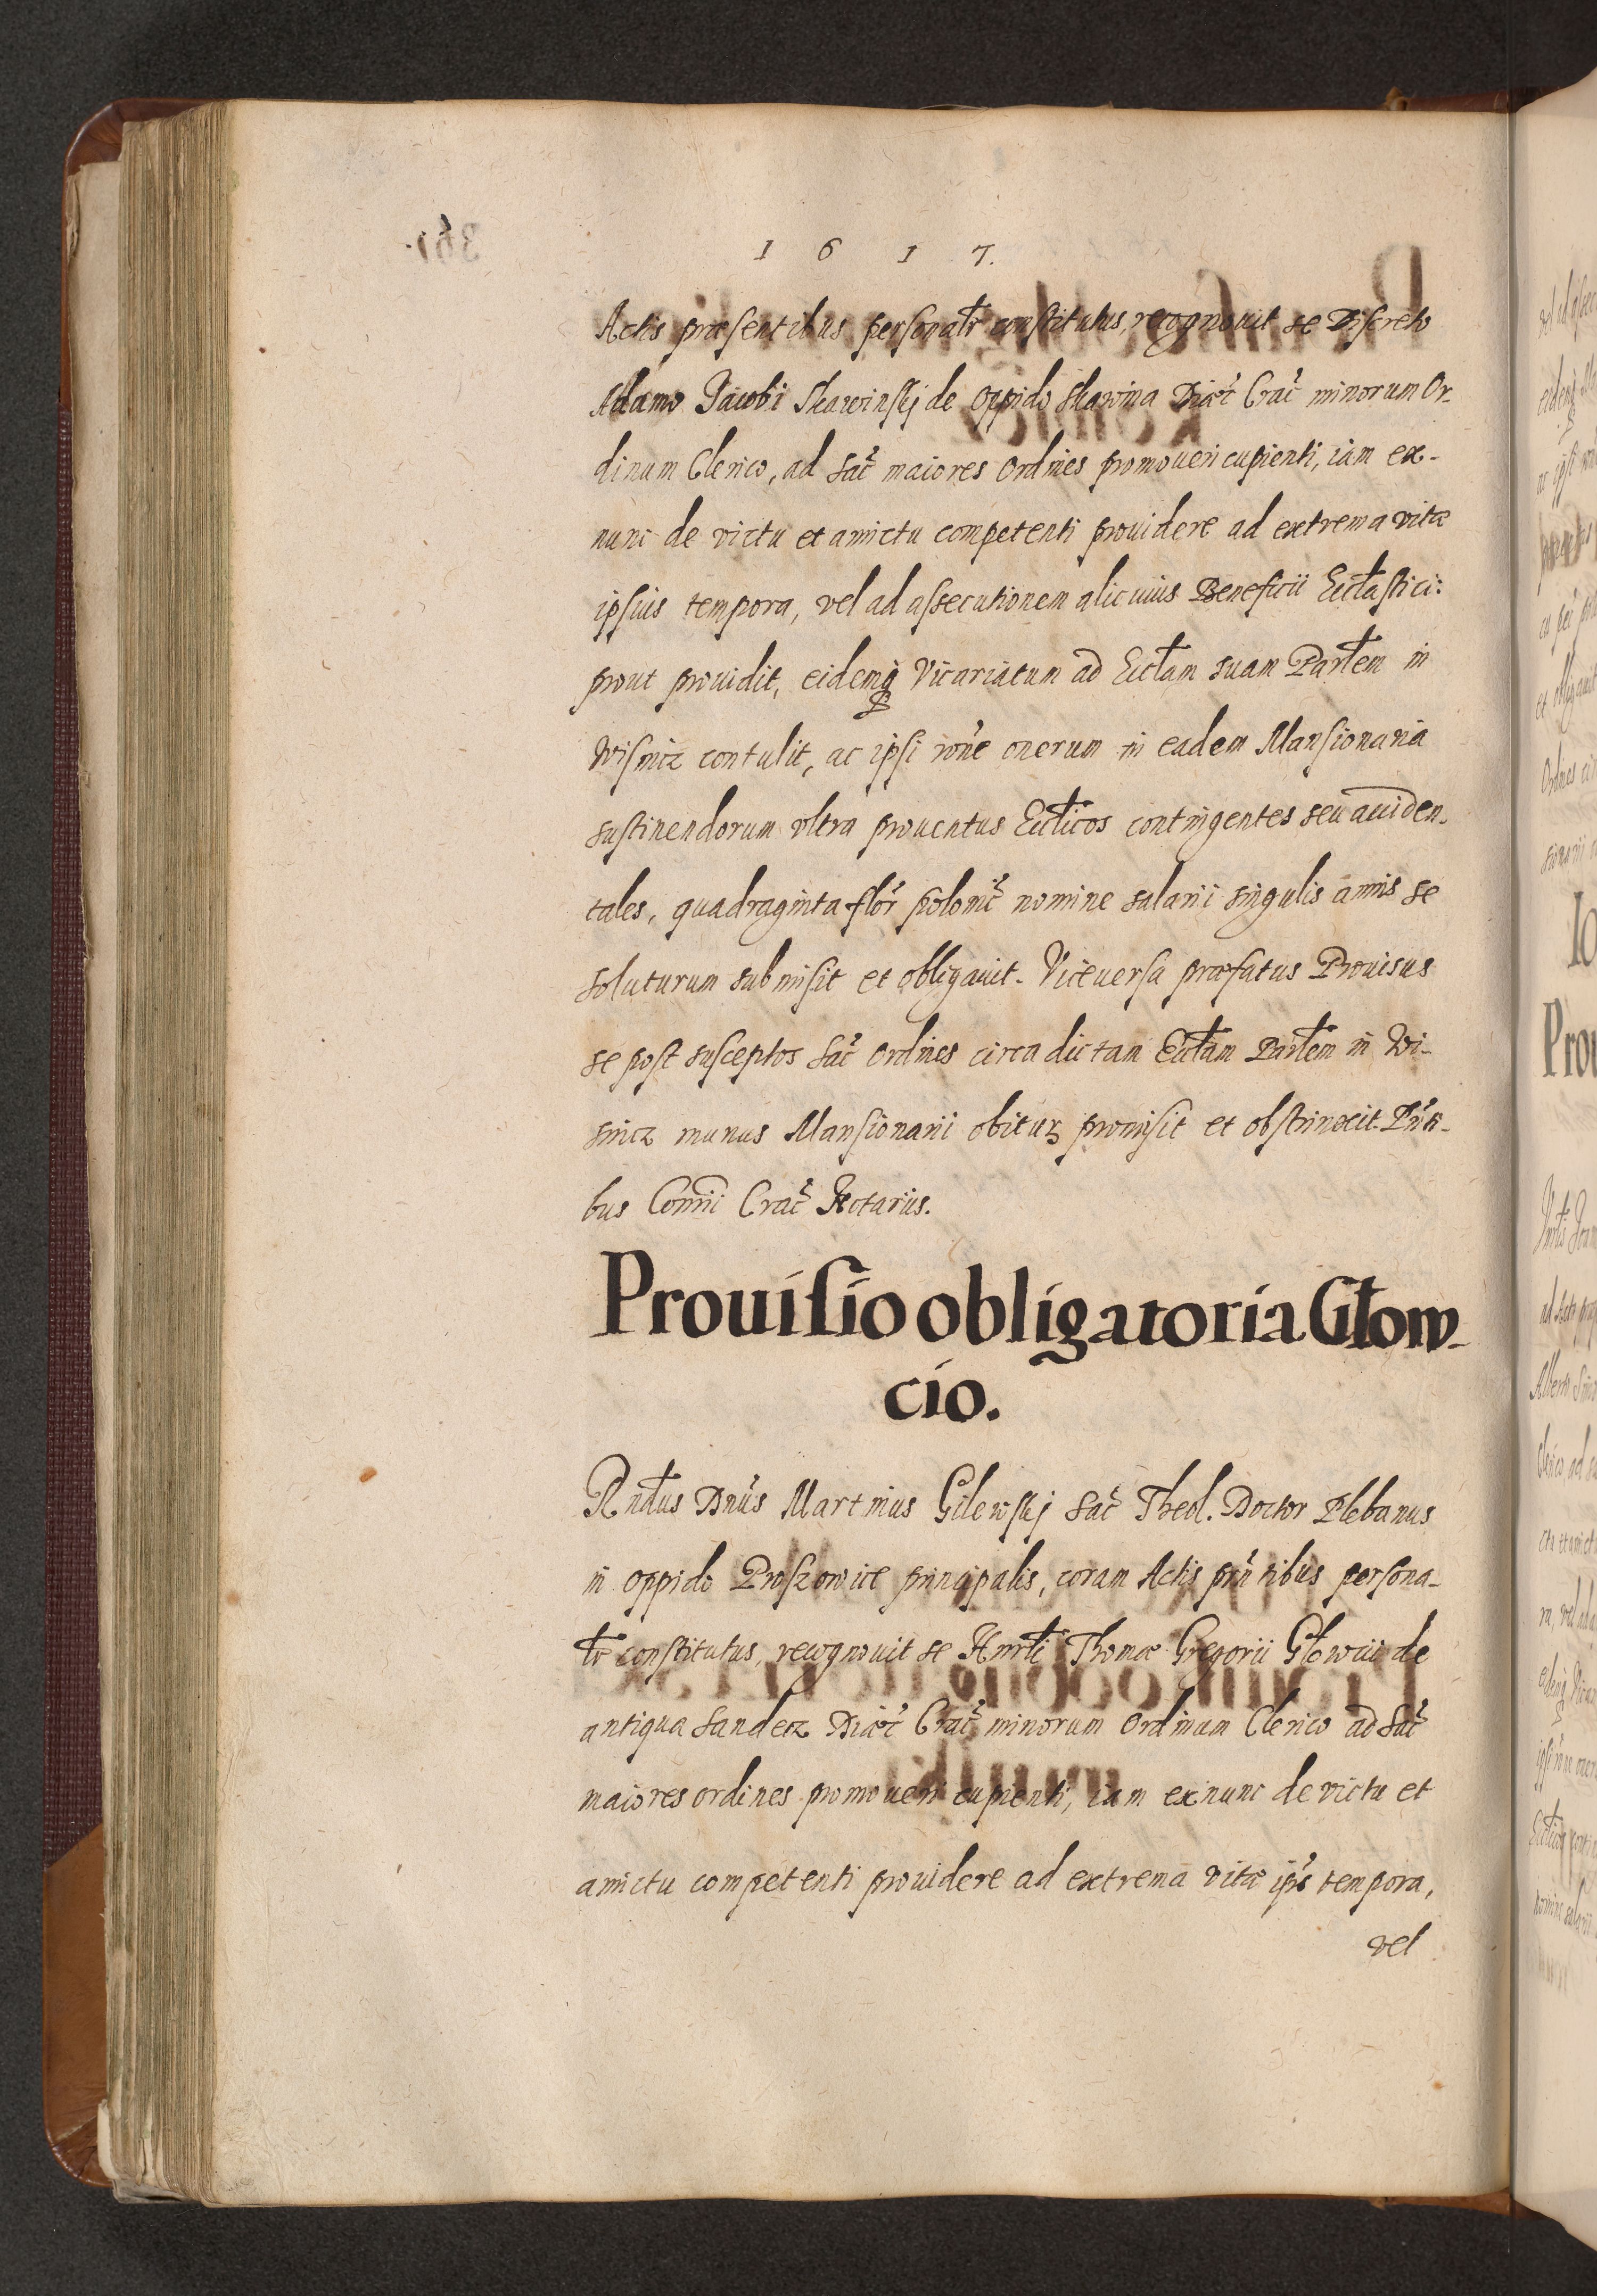 1 6 1 7.
Actis præsentibus personalr̃ constitutus, recognouit se Discreto
Adamo Jacobi Skawinskj de Oppido Skawina Diæc̃ Crac̃ minorum Or-
dinum Clerico, ad Sac̃ maiores Ordines promoueri cupienti, iam ex-
nunc de victu et amictu competenti prouidere ad extrema vitæ
ipsius tempora, vel ad assecutionem alicuius Beneficii Ecclãstici:
prout prouidit, eidemq̃ Vicariatum ad Ecctam suam Partem in
Wisnicz contulit, ac ipsi rõne onerum in eadem Mansionaria
sustinendorum vltra prouentus Ecclicos contingentes seu acciden-
tales, quadraginta flor̃ polonic̃ nomine salarii singulis annis se
soluturum submisit et obligauit. Viceuersa præfatus Prouisus
se post susceptos Sac̃ Ordines circa dictam Ecctam Partem in Wi-
snicz munus Mansionarii obiturȝ promisit et obstrinxit. Pñti-
bus Conñi Crac̃ Notarius.
Prouisio obligatoria Głow-
cio.
Rndus Dnus Martinus Gilewskj Sac̃ Theol. Doctor Plebanus
in oppido Proszowice principalis, coram Actis pñtibus persona-
lr̃ constitutus, recognouit se Hnrli Thomæ Gregorii Głowcii de
antiqua Sandecz Diæc̃ Crac̃ minorum Ordinum Clerico ad Sac̃
maiores ordines promoueri cupienti, iam exnunc de victu et
amictu competenti prouidere ad extrema vitæ ip̃s tempora,
vel